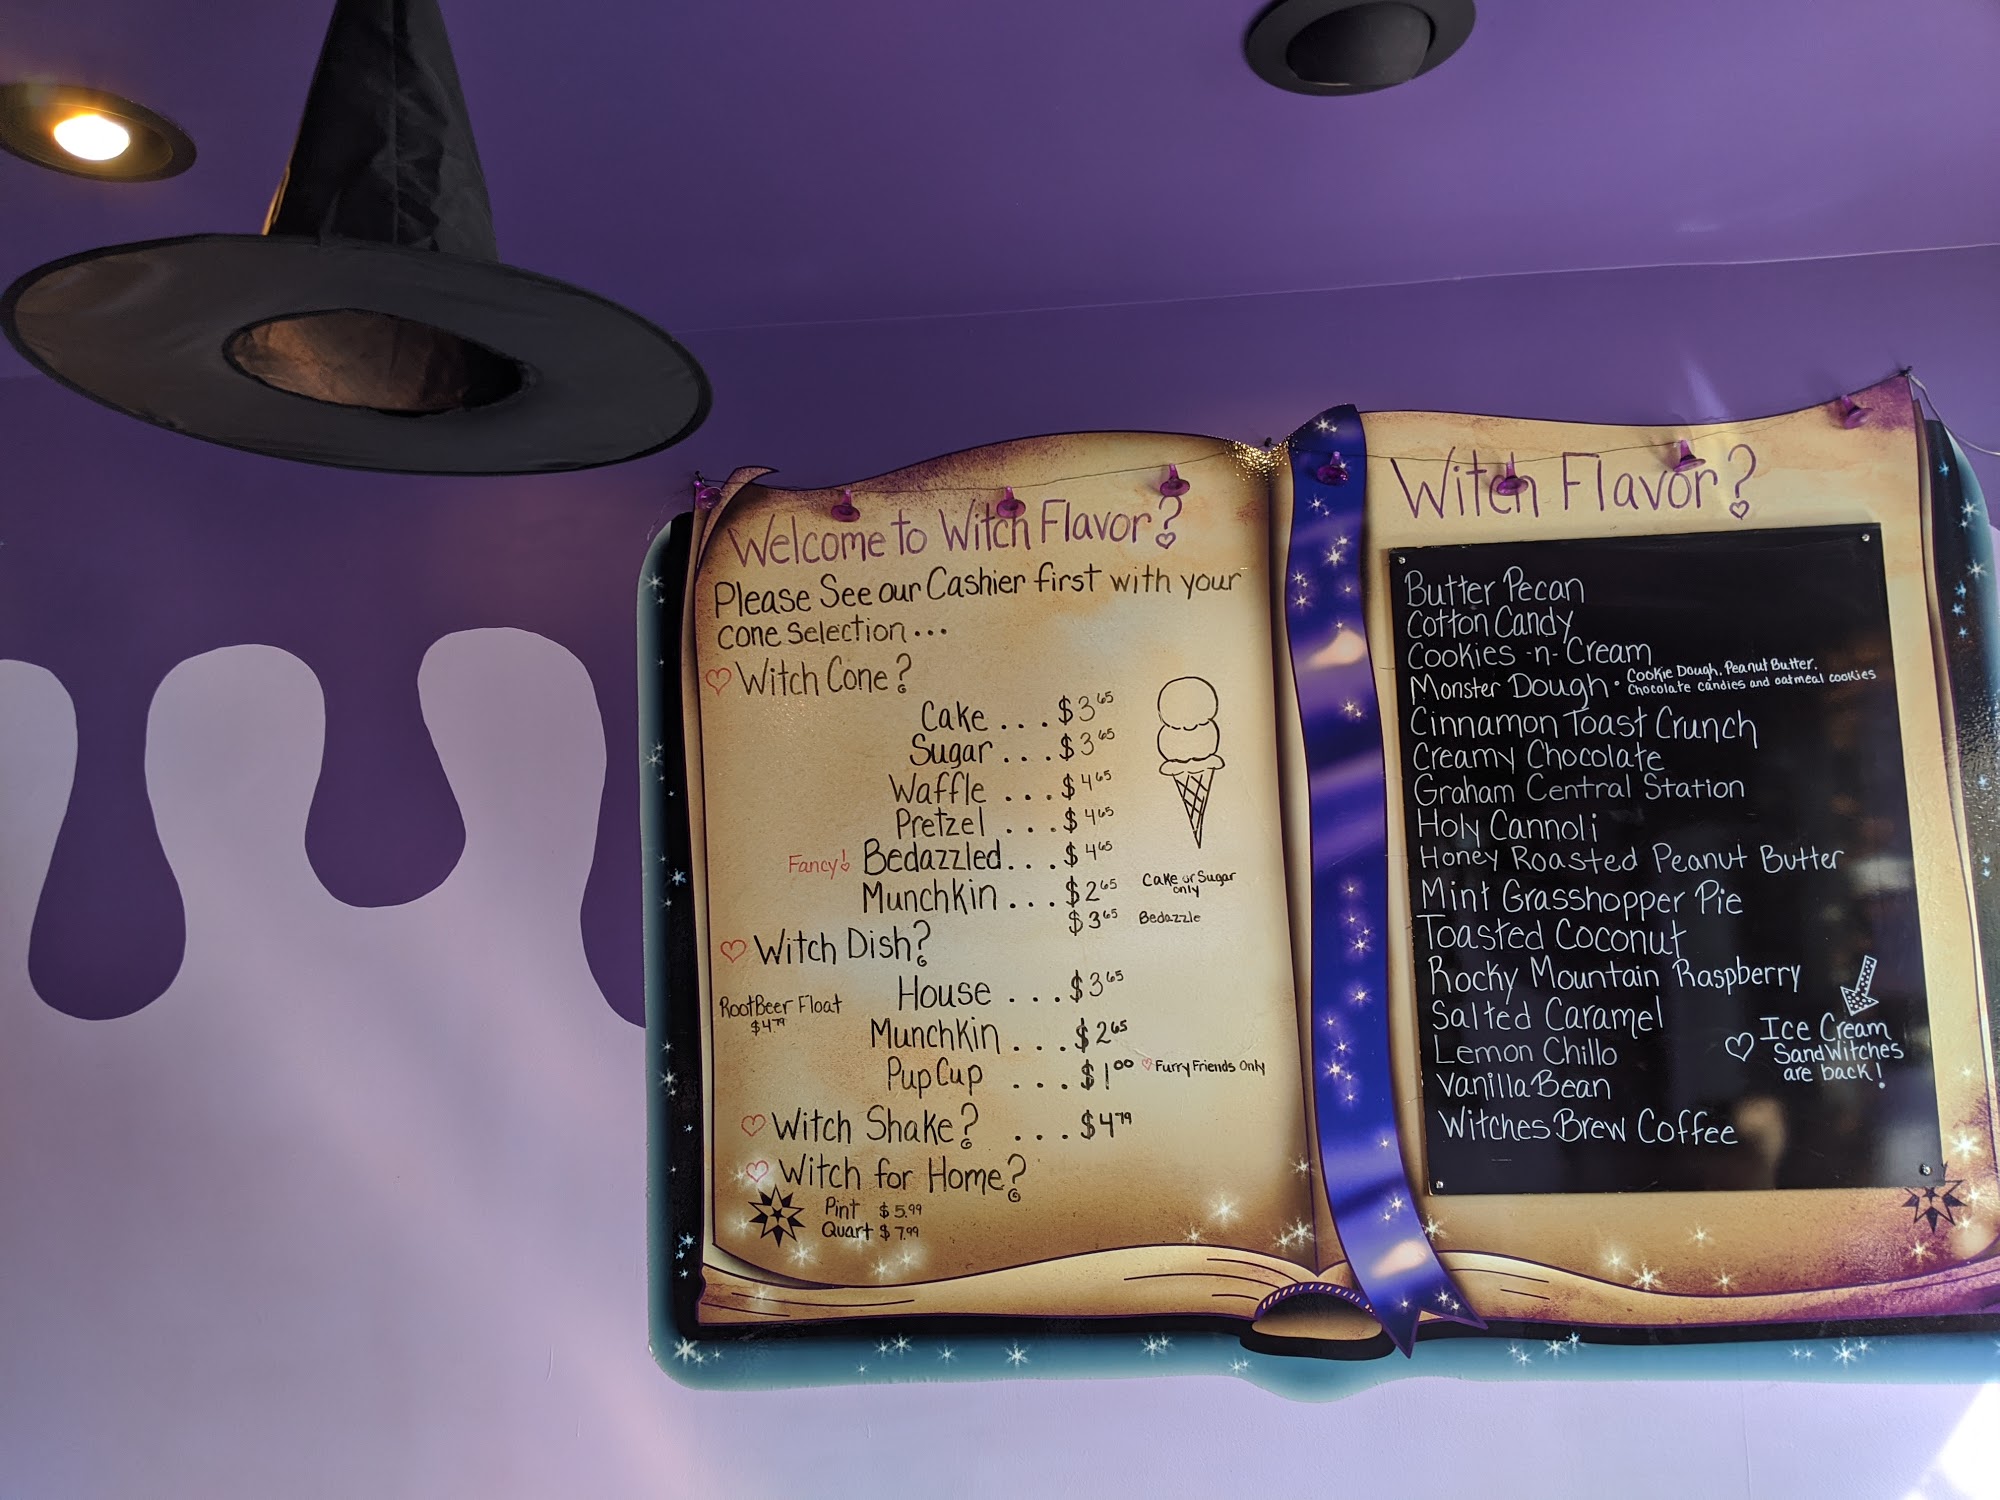 Welcome to Witch Flavor?
Please See our Cashier first with your
cone selection...
Witch Cone?
Cake ... $3.65
Sugar ... $3.65
Waffle ... $4.65
Pretzel ... $4.65
Fancy! Bedazzled... $4.65
Munchkin ... $2.65 Cake or Sugar only
$3.65 Bedazzle
Witch Dish?
House ... $3.65
RootBeer Float
$4.79
Munchkin ... $2.65
Pup Cup ... $1.00 Furry Friends Only
Witch Shake? ... $4.79
Witch for Home?
Pint $5.99
Quart $7.99
Witch Flavor?
Butter Pecan
Cotton Candy
Cookies -n- Cream
Monster Dough · Cookie Dough, Peanut Butter,
Chocolate candies and oatmeal cookies
Cinnamon Toast Crunch
Creamy Chocolate
Graham Central Station
Holy Cannoli
Honey Roasted Peanut Butter
Mint Grasshopper Pie
Toasted Coconut
Rocky Mountain Raspberry
Salted Caramel
Lemon Chillo
Vanilla Bean
Witches Brew Coffee
Ice Cream
SandWitches
are back!